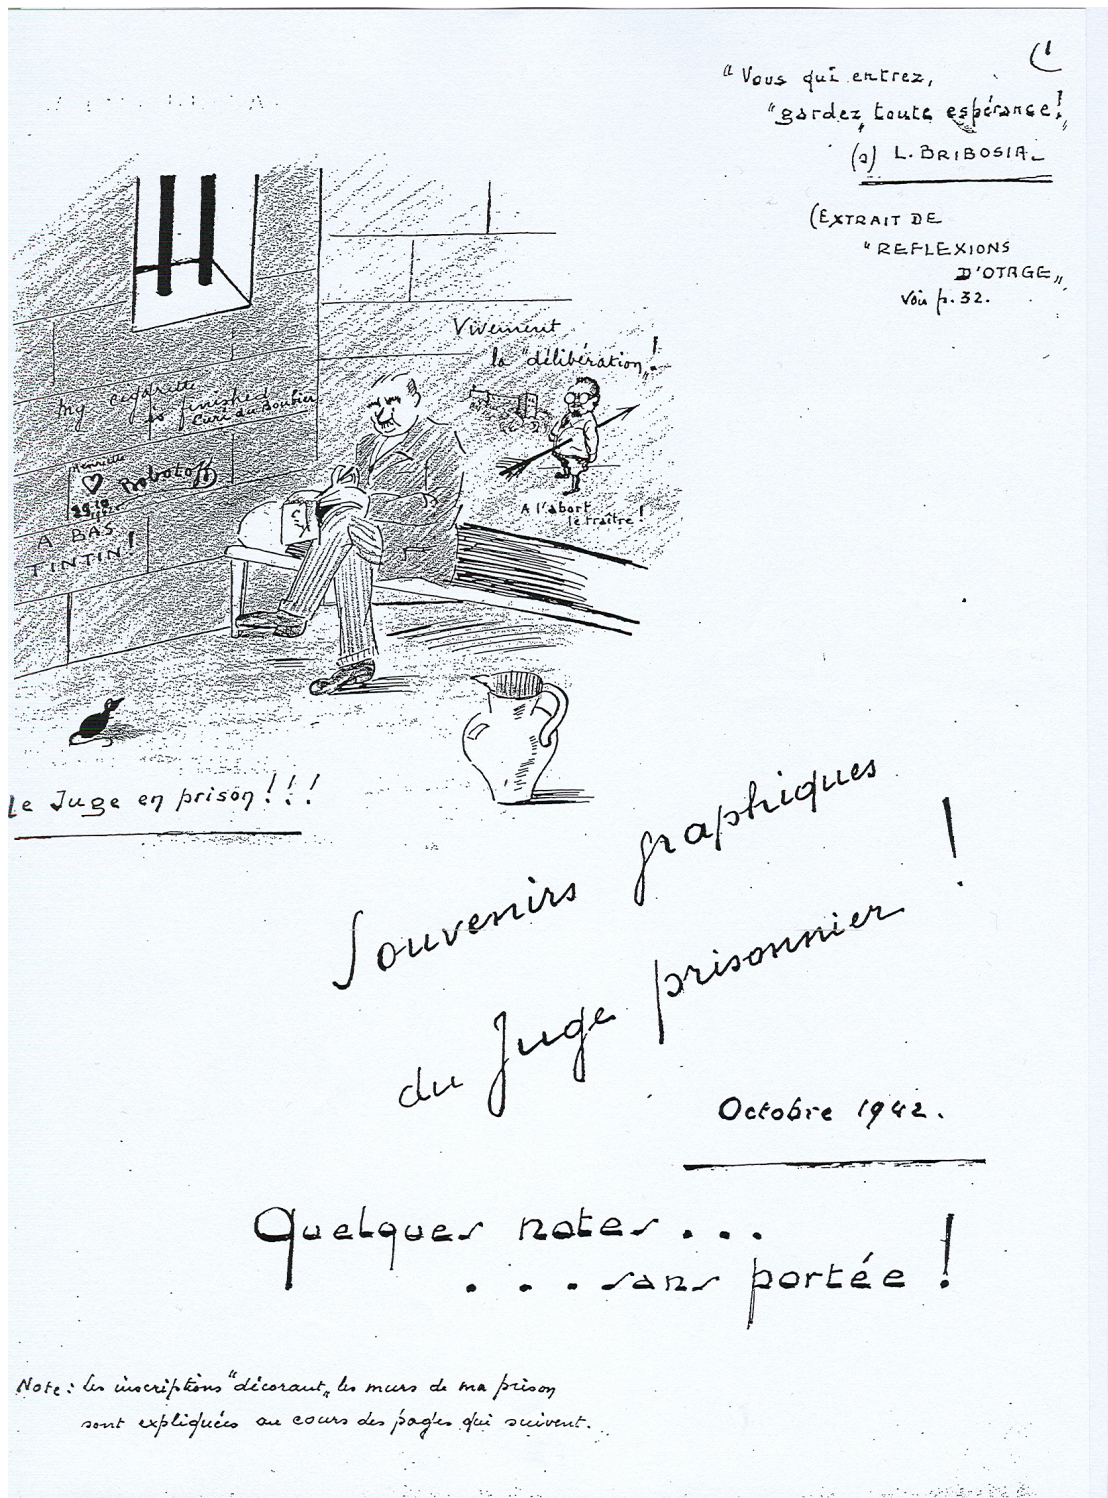 "Vous qui entrez,
"gardez" toute espérance!"
(s) L. BRIBOSIA.
(EXTRAIT DE
"REFLEXIONS
D'OTAGE"
Voir p. 32.
Vivement
la "délibération"!
My cigarette
is finished
Curé du Bouhier
Henriette
Bobotoff
29.10
A BAS
TINTIN!
A l'abort
le traître!
Le Juge en prison!!!
Souvenirs graphiques
du Juge prisonnier!
Octobre 1942.
Quelques notes...
...sans portée!
Note: les inscriptions "décorant" les murs de ma prison
sont expliquées au cours des pages qui suivent.